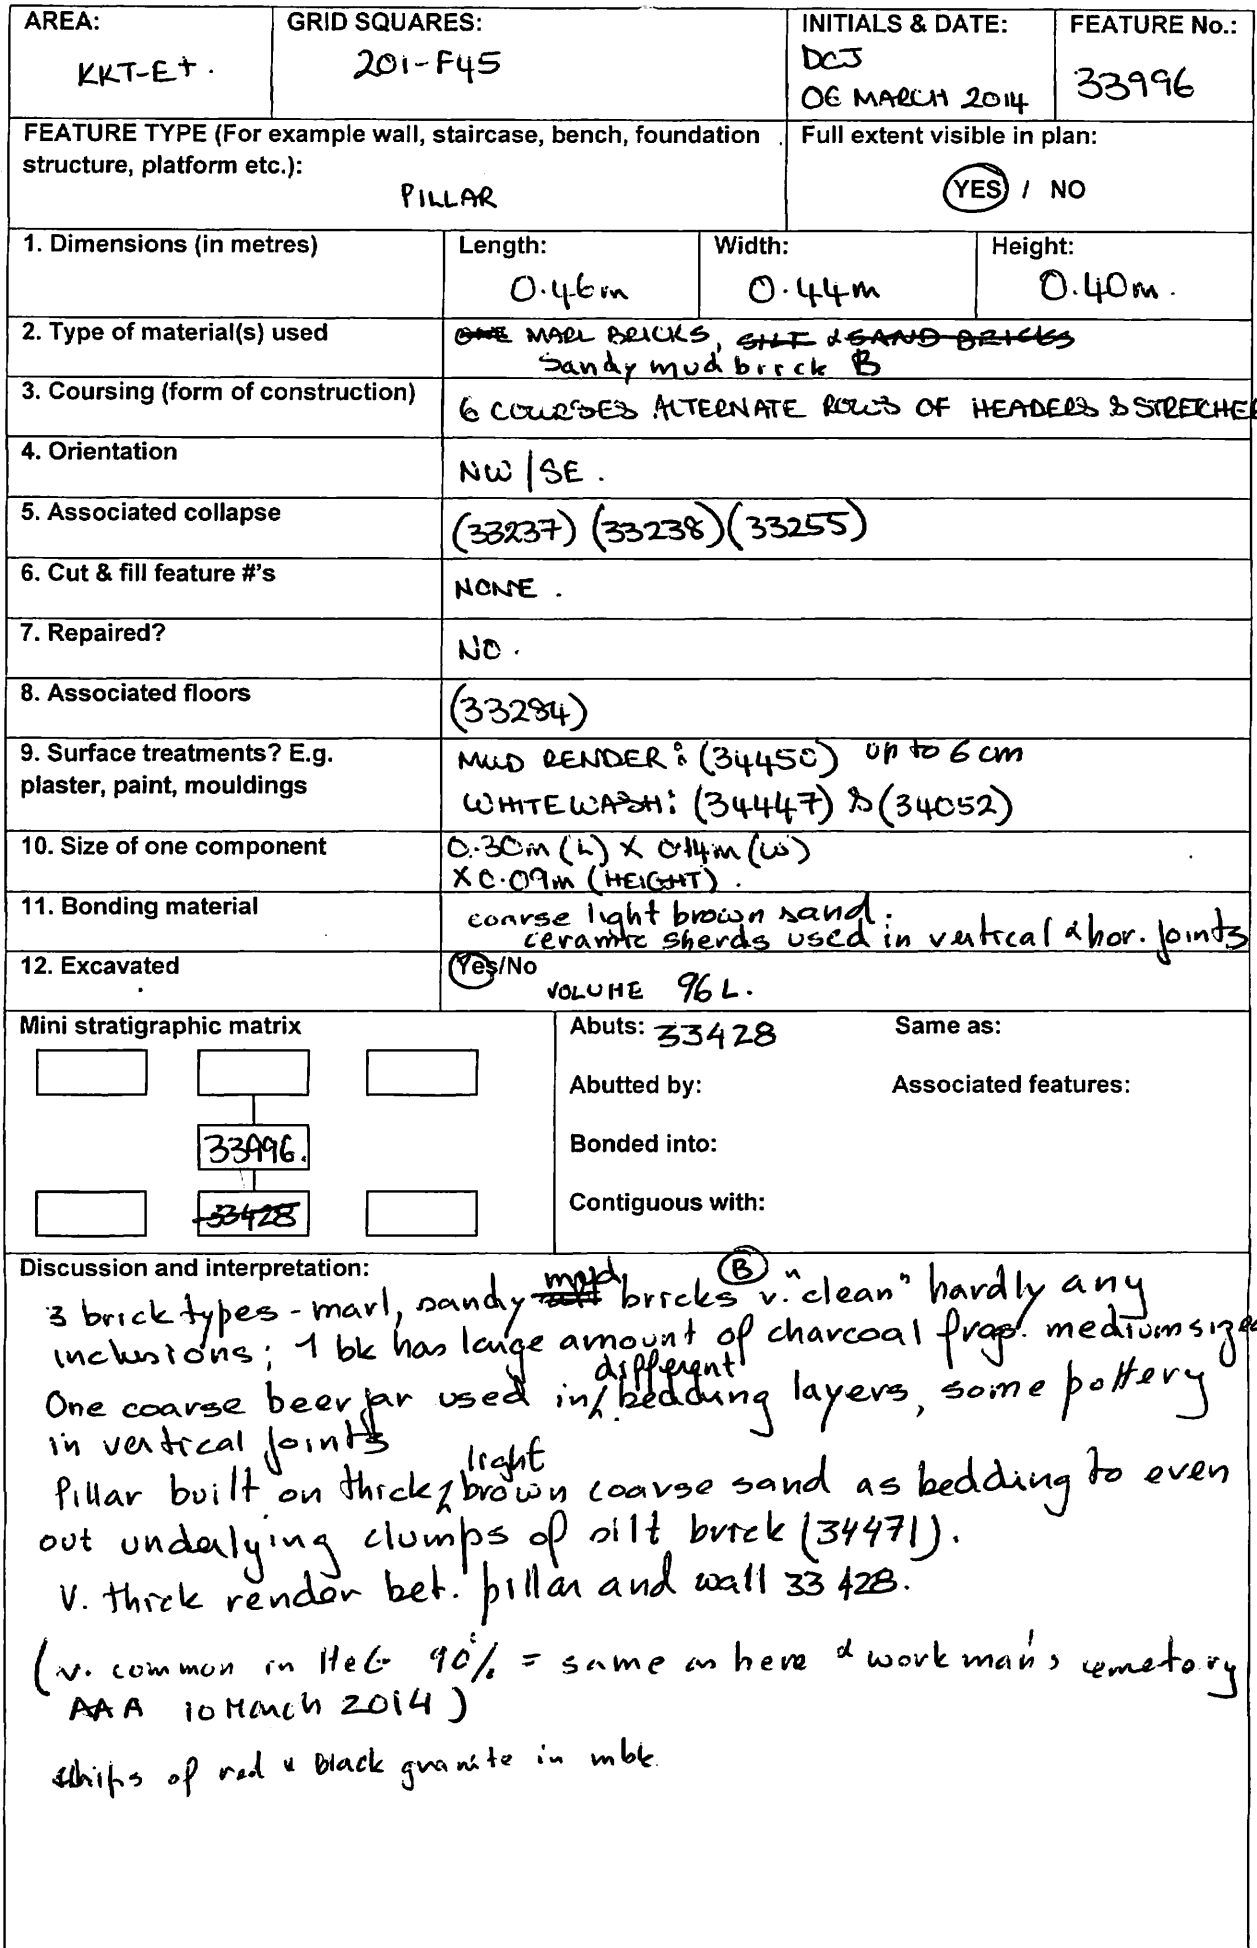 AREA: GRID SQUARES: INITIALS & DATE: FEATURE No.:
KKT-E+. 201-F45 DCJ 33996
06 MARCH 2014
FEATURE TYPE (For example wall, staircase, bench, foundation structure, platform etc.): Full extent visible in plan:
PILLAR YES / NO
1. Dimensions (in metres) Length: Width: Height:
0.46m 0.44m 0.40m.
2. Type of material(s) used MARL BRICKS, SILT & SAND BRICKS
Sandy mud brick B
3. Coursing (form of construction) 6 COURSES ALTERNATE ROWS OF HEADERS & STRETCHE
4. Orientation NW/SE.
5. Associated collapse (33237) (33238) (33255)
6. Cut & fill feature #'s NONE.
7. Repaired? NO.
8. Associated floors (33284)
9. Surface treatments? E.g. MUD RENDER: (34450) up to 6 cm
plaster, paint, mouldings WHITEWASH: (34447) & (34052)
10. Size of one component 0.30m (L) X 0.14m (W)
X 0.09m (HEIGHT).
11. Bonding material coarse light brown sand.
ceramic sherds used in vertical & hor. joints
12. Excavated Yes/No
VOLUME 96 L.
Mini stratigraphic matrix Abuts: 33428 Same as:
Abutted by: Associated features:
33996. Bonded into:
33428 Contiguous with:
Discussion and interpretation:
3 brick types - marl, sandy mud bricks (B) v. "clean" hardly any
inclusions; 1 bk has large amount of charcoal frags. medium sized
One coarse beer jar used in different bedding layers, some pottery
in vertical joints
Pillar built on thick, light brown coarse sand as bedding to even
out underlying clumps of silt brick (34471).
V. thick render bet. pillar and wall 33428.
(v. common in HeG 90% = same as here & workman's cemetory
AAA 10 March 2014)
chips of red & black granite in mbk.